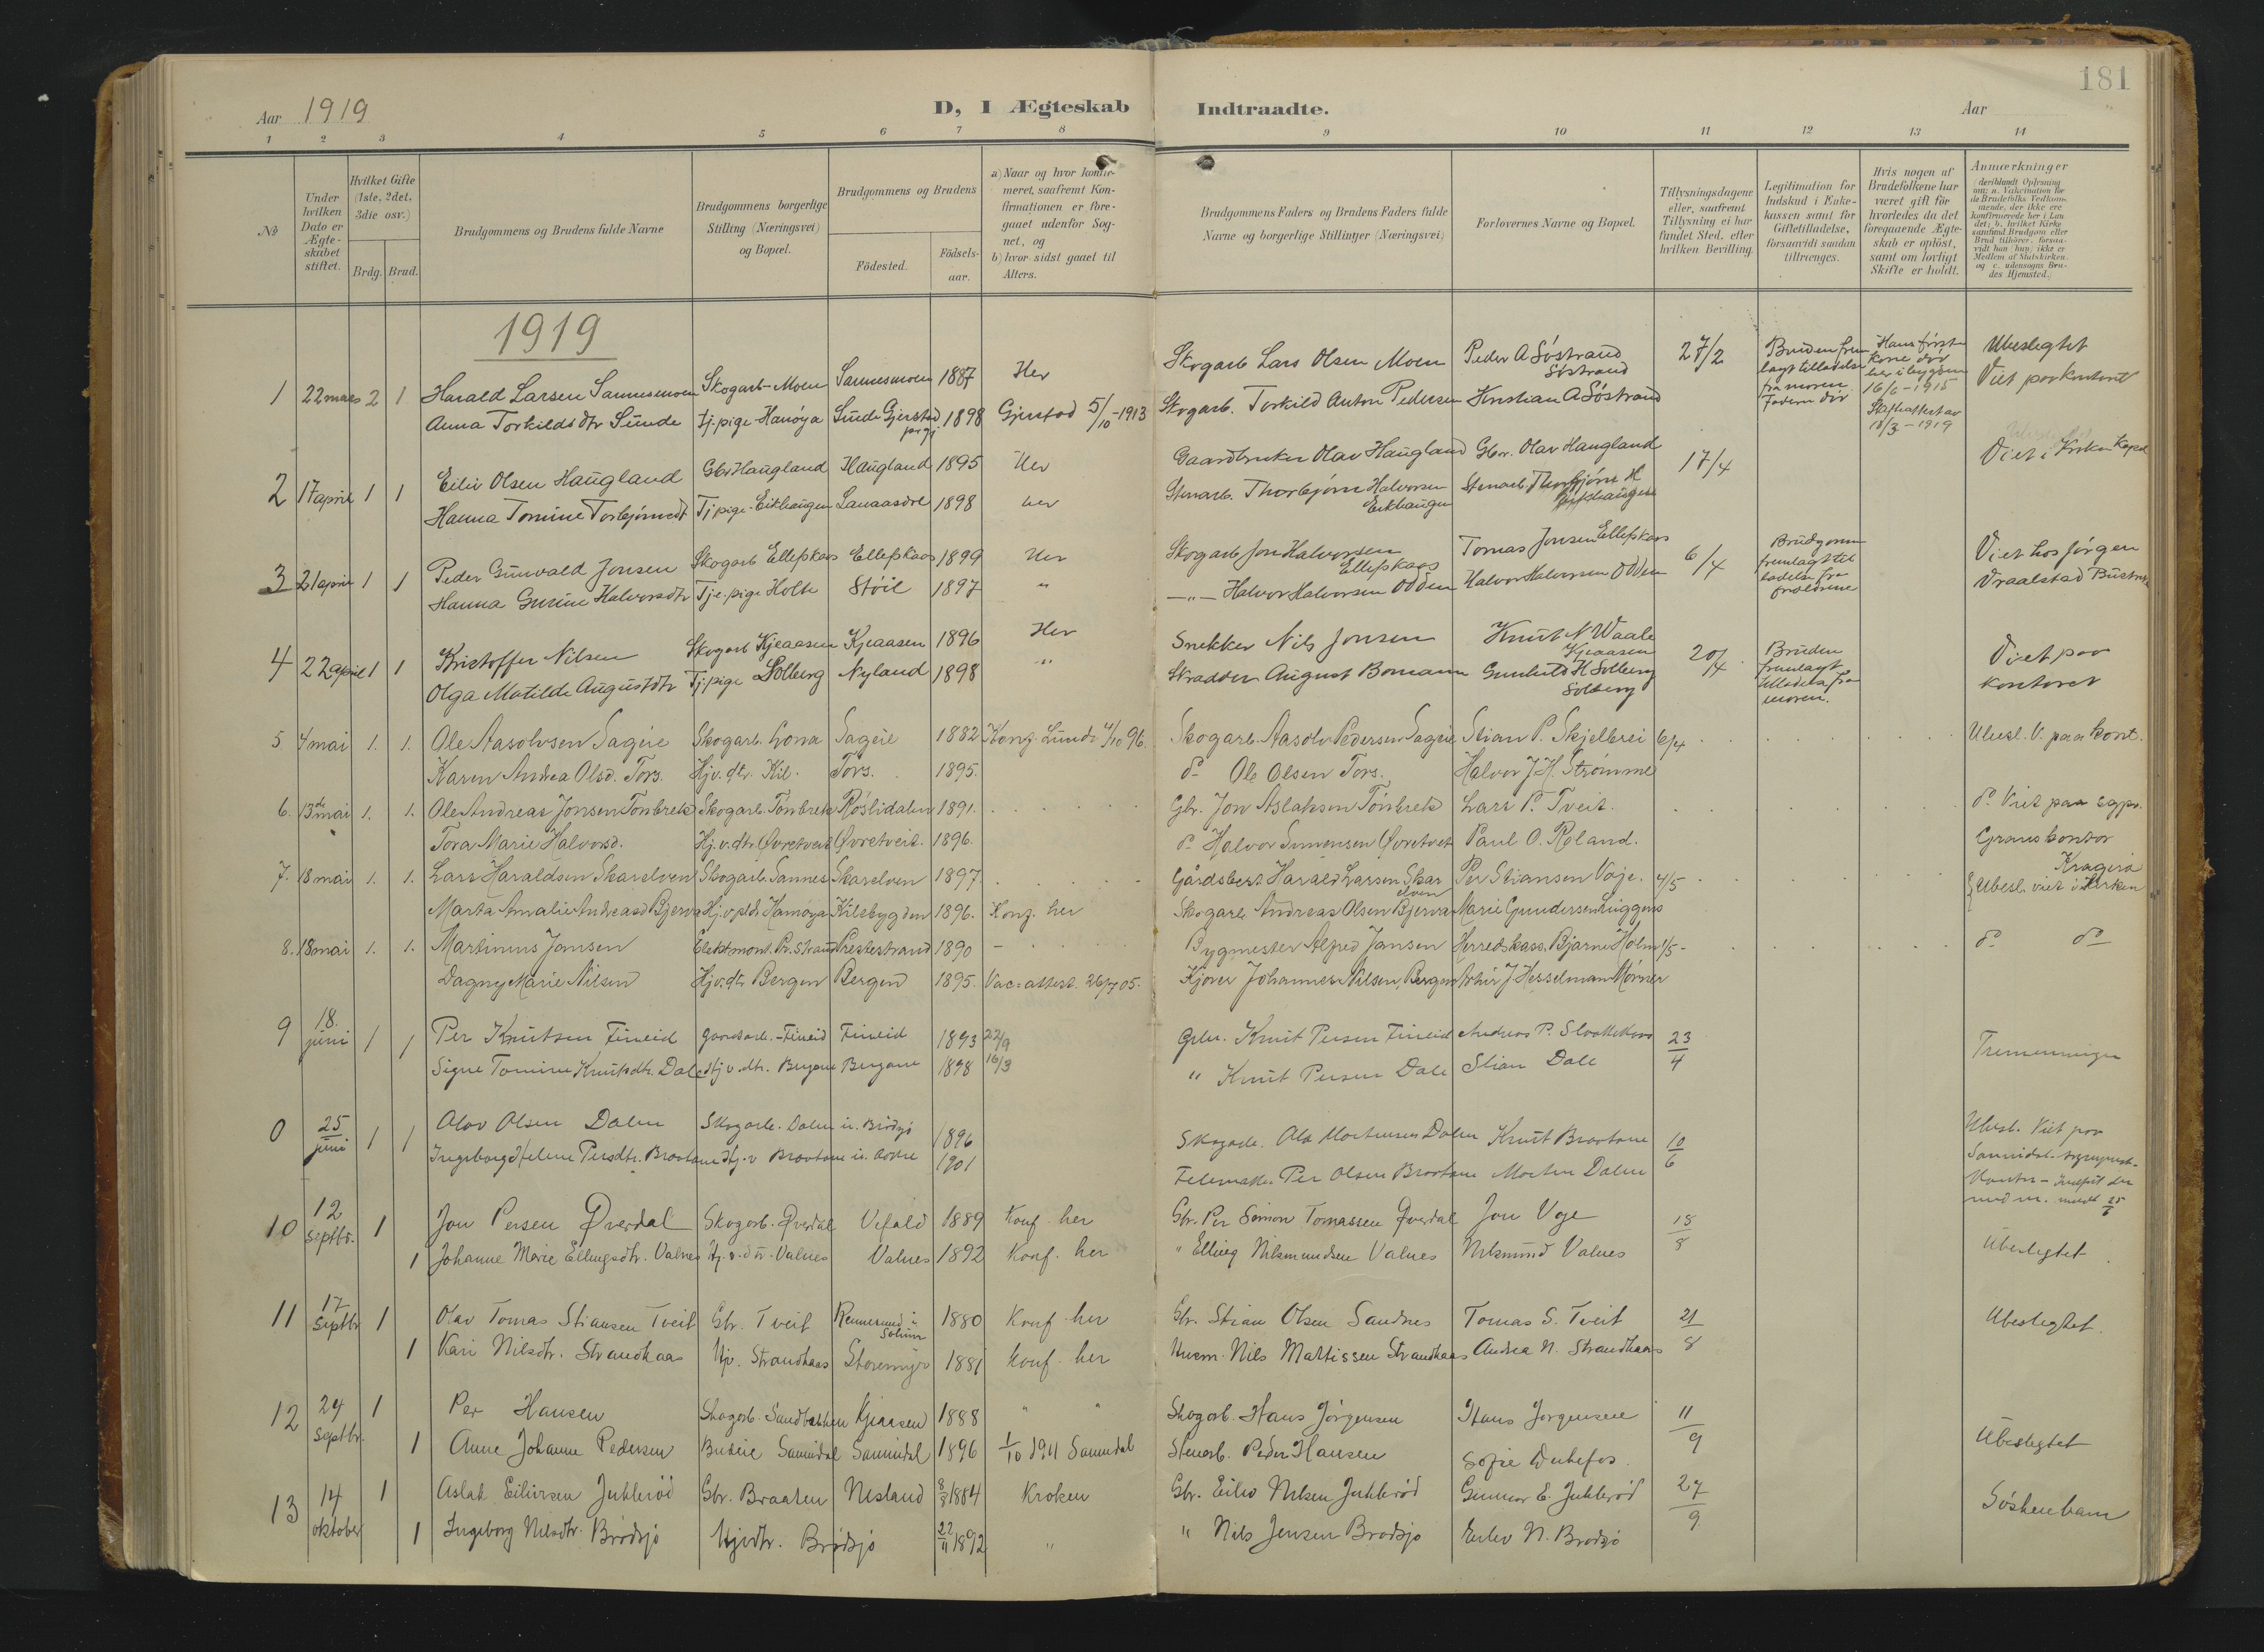 181
Aar 1919
D, I Ægteskab Indtraadte.
Aar
1 2 3 4 5 6 7 8 9 10 11 12 13 14
No
Under hvilken Dato er Ægteskabet stiftet.
Hvilket Gifte (1ste, 2det, 3die osv.)
Brdg. Brud.
Brudgommens og Brudens fulde Navne
Brudgommens borgerlige Stilling (Næringsvei) og Bopæl.
Brudgommens og Brudens
Födested.
Födselsaar.
a) Naar og hvor konfirmeret, saafremt Konfirmationen er foregaaet udenfor Sognet, og
b) hvor sidst gaaet til Alters.
Brudgommens Faders og Brudens Faders fulde Navne og borgerlige Stillinger (Næringsvei)
Forlovernes Navne og Bopæl.
Tillysningsdagene eller, saafremt Tillysning ei har fundet Sted, efter hvilken Bevilling.
Legitimation for Indskud i Enkekassen samt for Giftetilladelse, forsaavidt saadan tiltrænges.
Hvis nogen af Brudefolkene har været gift för hvorledes da det foregaaende Ægteskab er oplöst, samt om lovligt Skifte er holdt.
Anmærkninger
(deriblandt Oplysning om: a. Vakcination for de Brudefolks Vedkommende, der ikke ere konfirmerede her i Landet; b. hvilket Kirkesamfund Brudgom eller Brud tilhörer, forsaavidt han (hun) ikke er Medlem af Statskirken, og c. udensogns Brudes Hjemsted.)
1919
1 22 mars 2 1 Harald Larsen Sannesmoen Skogarb. Moen Sannesmoen 1887 Her Skogarb Lars Olsen Moen Peder A Söstrand Söstrand 27/2 Bruden frem lagt tilladelse fra moren Fadern död Hans første kone død her i bygden 16/6-1915 Skifteattest av 18/3-1919 Ubeslegtet
Anna Torkildsdtr Sunde Tj.pige Hamöya Sunde Gjerstad prgj. 1898 Gjerstad 5/10-1913 Skogarb. Torkild Anton Pedersen Kristian A Söstrand Viet paa kontoret
2 17 april 1 1 Eiliv Olsen Haugland Gbr Haugland Haugland 1895 Her Gaardbruker Olav Haugland Gbr. Olav Haugland 17/4 Viet i Kroken Kapel
Hanna Tomine Torbjörnsdt Tj pige Eikhaugen Lanaasdre 1898 her Stenarb. Thorbjörn Halvorsen Eikhaugen Stenarb. Thorbjörn H Eikhaugen
3 21 april 1 1 Peder Gunvald Jonsen Skogarb Ellefskaas Ellefskaas 1899 Her Skogarb Jon Halvorsen Ellefskaas Tomas Jonsen Ellefskaas 6/4 Brudgommen fremlagt til ladelse fra forældrene Viet hos Jörgen
Hanna Gurine Halvorsdtr Tje.pige Holte Stöil 1897 " —"— Halvor Halvorsen Odden Halvor Halvorsen Odden Vraalstad
4 22 april 1 1 Kristoffer Nilsen Skogarb Kjeaasen Kjeaasen 1896 Her Snekker Nils Jonsen Knut N Waale Kjeaasen 20/4 Bruden fremlagt tilladelse fra moren. Viet paa
Olga Matilde Augustdtr Tj pige Solberg Nyland 1898 " Skrædder August Bomann Gunhild H Solberg Solberg kontoret
5. 4 mai 1. 1. Ole Aasolvsen Sagene Skogarb. Lona Sageie 1882 Konf. Lunde 4/10 96. Skogarb. Aasolv Pedersen Sageie Stian P. Skjelbrei 6/4 Ubesl. V. paa kont.
Karen Andrea Olsd. Tors. Hj.v. dtr. Kil. Tors. 1895. do Ole Olsen Tors. Halvor J H. Strömme
6. 13de mai 1. 1. Ole Andreas Jonsen Tönbrek Skogarb. Tönbrek Röslidalen 1891. Gbr. Jon Aslaksen Tönbrek Lars P. Tveit. do Viet paa sgpr.
Tora Marie Halvorsd. Hj.v.dtr. Øvretveit Øvretveit. 1896. do Halvor Simensen Øvretveit Paul O. Roland. Grans kontor Kragerö
7. 18 mai 1. 1. Lars Haraldsen Skarelven Skogarb. Sannes Skarelven 1897 Gårdsbest. Harald Larsen Skarelven Per Stiansen Vöje. 4/5 Ubesl. viet i Kirken
Marta Amalie Andreasd Bjerva Hj.v. Hamöya Kilebygden 1896. Konf. her Skogarb Andreas Olsen Bjerva Marie Gundersen
8. 18 mai 1. 1. Martinius Jansen Elektmont. Pr. Strand Prestestrand 1890 – Bygmester Alfred Jansen Herredskass. Bjarne Holm 1/5 do do
Dagny Marie Nilsen Hj.v.dtr Bergen Bergen 1895. Vac=attest. 26/7 05. Johannes Nilsen, Bergen J. Hesselman Mörner
9 18. juni 1 1 Per Knutsen Fineid Gaardsarb. - Fineid Fineid 1893 22/9 Gbr. Knut Persen Fineid Andreas P. 23/4 Tremenninger
Signe Tomine Knutsdtr. Dale Hj v. dtr. Bergane Bergane 1898 16/3 " Knut Persen Dale Stian Dale
0 25 juni 1 1 Olav Olsen Dalen Skogarb. Dalen u. Brödsjö 1896 Skogarb. Ole Mortensen Dalen Knut Braatane 10/6 Ubesl. Viet paa
Ingeborg Helene Persdtr. Braatane Hj. v Braatane 1901 Per Olsen Braatane Morten Dalen Sannidal. sogneprest- kontor –
10 12 septbr. 1 Jon Persen Øverdal Skogarb. Øverdal Vefald 1889 Konf. her Gbr. Per Simon Tomassen Øverdal Jon Vøje 18/8
1 Johanne Marie Ellingsdtr. Valnes Hj.v.dtr. Valnes Valnes 1892 Konf. her " Elling Nilsmundsen Valnes Nilsmund Valnes Ubeslegtet
11 17 septbr 1 Olav Tomas Stiansen Tveit Gbr. Tveit Rennesund i Solum 1880 Konf. her Gbr. Stian Olsen Sandnes Tomas S. Tveit 21/8 Ubeslegtet.
1 Kari Nilsdtr. Strandkaas Hj. Strandkaas Storemyr 1881 Konf. her Husm. Nils Mattissen Strandkaas Andrea N. Strandkaas
12 24 septbr. 1 Per Hansen Skogarb. Sandbakken Kjeaasen 1888 " " Skogarb. Hans Jörgensen Hans Jorgensen 11/9
1 Anne Johanne Pedersen Budeie Sannidal Sannidal 1896 1/10 1911 Sannidal Stenarb. Peder Hansen Sofie Ubeslegtet
13 14 oktober 1 Aslak Eilivsen Jukleröd Gbr. Braaten Nesland 1884 Kroken Gbr. Eiliv Nilsen Juklerød Gunnar E. Juklerød 27/9 Söskenbarn
1 Ingeborg Nilsdtr. Brödsjö Hjvdtr. Brödsjö 22/11 1892 " " Nils Jensen Brødsjø Eilev N. Brødsjö